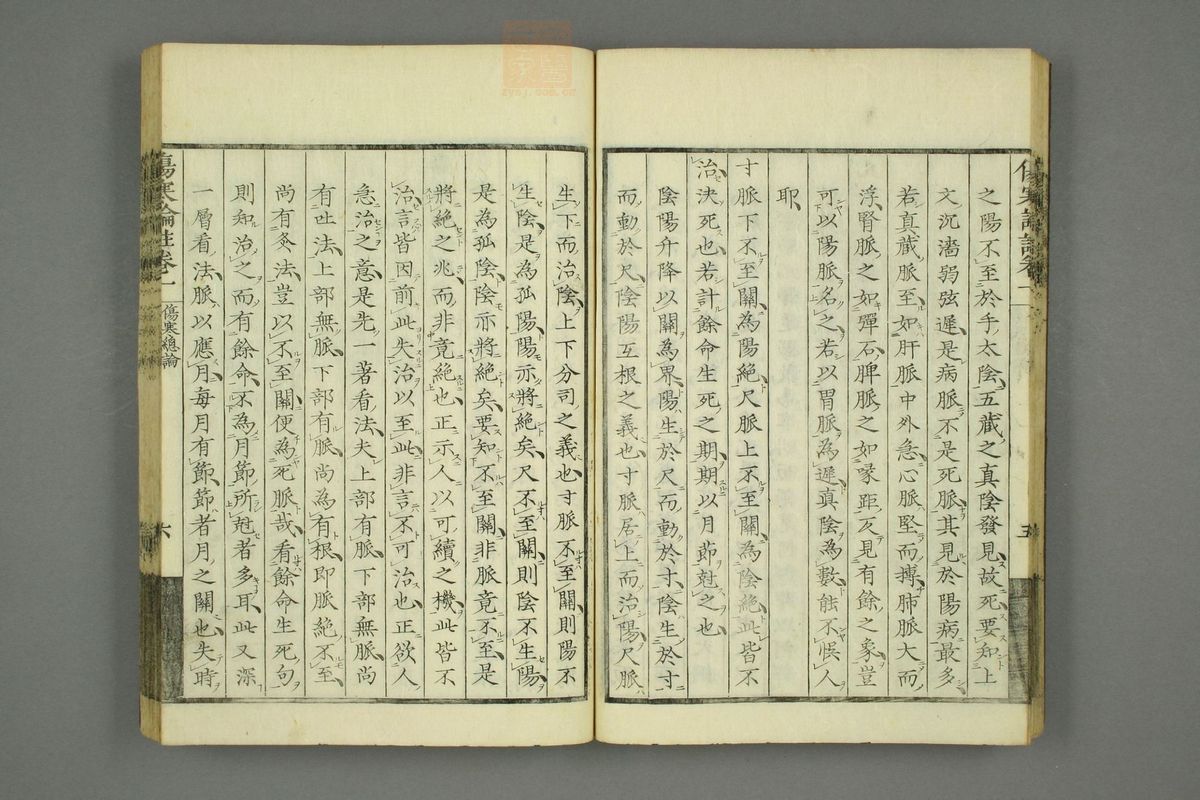 之陽不至於手太陰五藏之真陰發見故死要知上
文沉濇弱弦遲是病脈不是死脈其見於陽病最多
若真藏脈至如肝脈中外急心脈堅而搏肺脈大而
浮腎脈之如彈石脾脈之如喙距反見有餘之象豈
可以陽脈名之若以胃脈為遲真陰為數能不悞人
耶
寸脈下不至關為陽絕尺脈上不至關為陰絕此皆不
治決死也若計餘命生死之期期以月節尅之也
陰陽升降以關為界陽生於尺而動於寸陰生於寸
而動於尺陰陽互根之義也寸脈居上而治陽尺脈
五
生下而治陰上下分司之義也寸脈不至關則陽不
生陰是為孤陽陽亦將絕矣尺不至關則陰不生陽
是為孤陰陰亦將絕矣要知不至關非脈竟不至是
將絕之兆而非竟絕也正示人以可續之機此皆不
治言皆因前此失治以至此非言不可治也正欲人
急治之意是先一著看法夫上部有脈下部無脈尚
有吐法上部無脈下部有脈尚為有根即脈絕不至
尚有灸法豈以不至關便為死脈哉看餘命生死句
則知治之而有餘命不為月節所尅者多耳此又深
一層看法脈以應月每月有節節者月之關也失時
傷寒論註卷一 傷寒總論
六